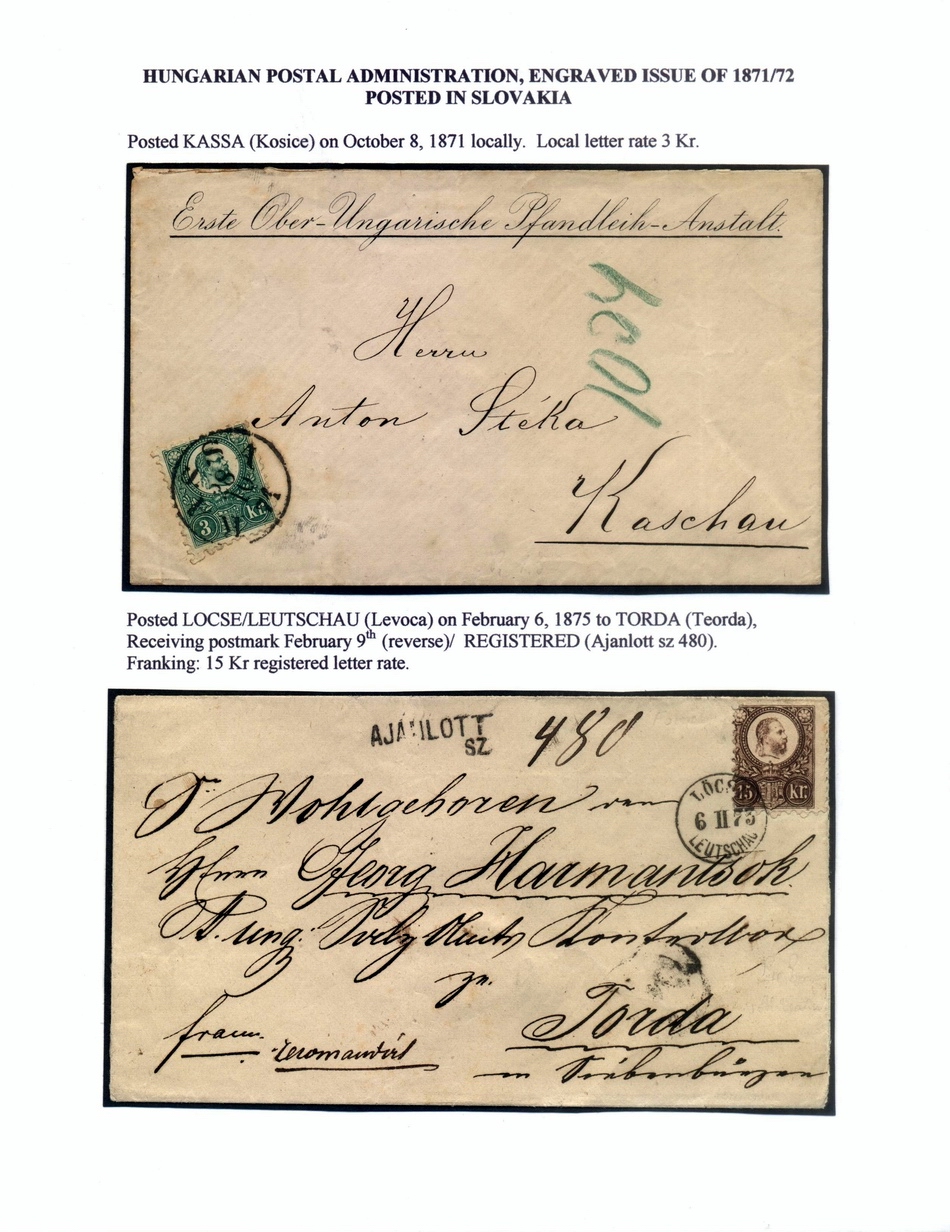 HUNGARIAN POSTAL ADMINISTRATION, ENGRAVED ISSUE OF 1871/72
POSTED IN SLOVAKIA
Posted KASSA (Kosice) on October 8, 1871 locally. Local letter rate 3 Kr.
Erste Ober-Ungarische Pfandleih-Anstalt.
1024
Herrn
Anton Stéka
3 Kr.
Kaschau
Posted LOCSE/LEUTSCHAU (Levoca) on February 6, 1875 to TORDA (Teorda),
Receiving postmark February 9th (reverse)/ REGISTERED (Ajanlott sz 480).
Franking: 15 Kr registered letter rate.
AJÁNLOTT
SZ 480
15 Kr.
LÖCSE
6 II 75
LEUTSCHAU
Sr Wohlgeboren dem
Herrn Georg Harmantsok
K. ung. Salz Amts Kontrollor
zu
Torda
in Siebenbürgen